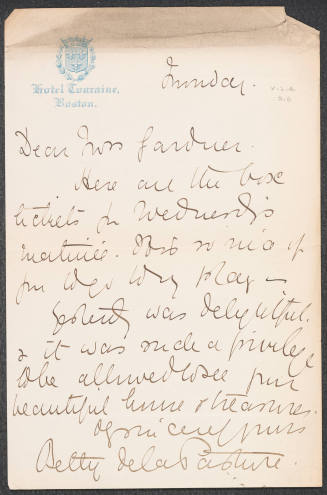 Hotel Touraine,
Boston.
Sunday.
Dear Mrs Gardner.
Here are the box
tickets for Wednesday's
matinée. It is so nice of
you to go to my play –
Yesterday was delightful.
& it was such a privilege
to be allowed to see your
beautiful house & treasures.
Yrs sincerely yours
Betty de la Pasture.